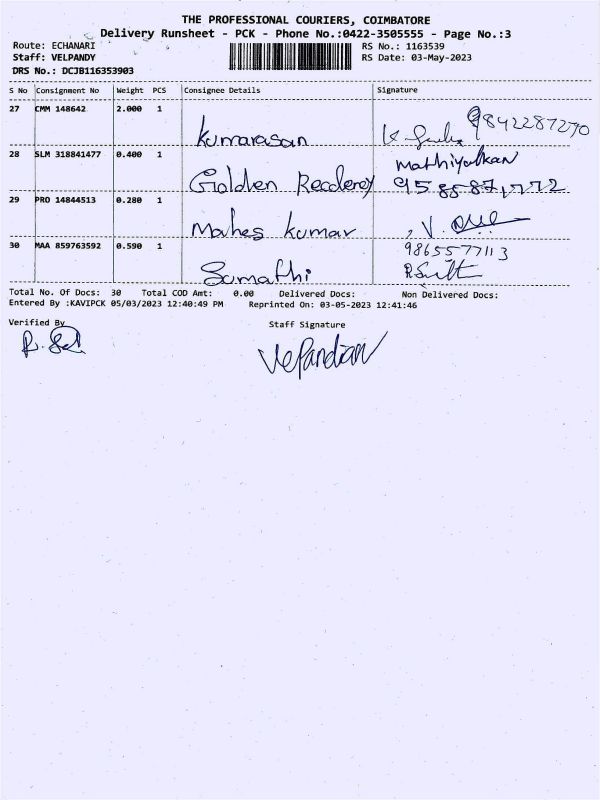 THE PROFESSIONAL COURIERS, COIMBATORE
Delivery Runsheet - PCK - Phone No.:0422-3505555 - Page No.:3
Route: ECHANARI RS No.: 1163539
Staff: VELPANDY RS Date: 03-May-2023
DRS No.: DCJB116353903
S No Consignment No Weight PCS Consignee Details Signature
27 CMM 148642 2.000 1 Kumarasan 9842287270
28 SLM 318841477 0.400 1 Golden Mathiyalkan
29 PRO 14844513 0.280 1 Mahes Kumar
30 MAA 859763592 0.590 1 Sumathi 9865577113
Total No. Of Docs: 30 Total COD Amt: 0.00 Delivered Docs: Non Delivered Docs:
Entered By :KAVIPCK 05/03/2023 12:40:49 PM Reprinted On: 03-05-2023 12:41:46
Verified By Staff Signature
Velpandian